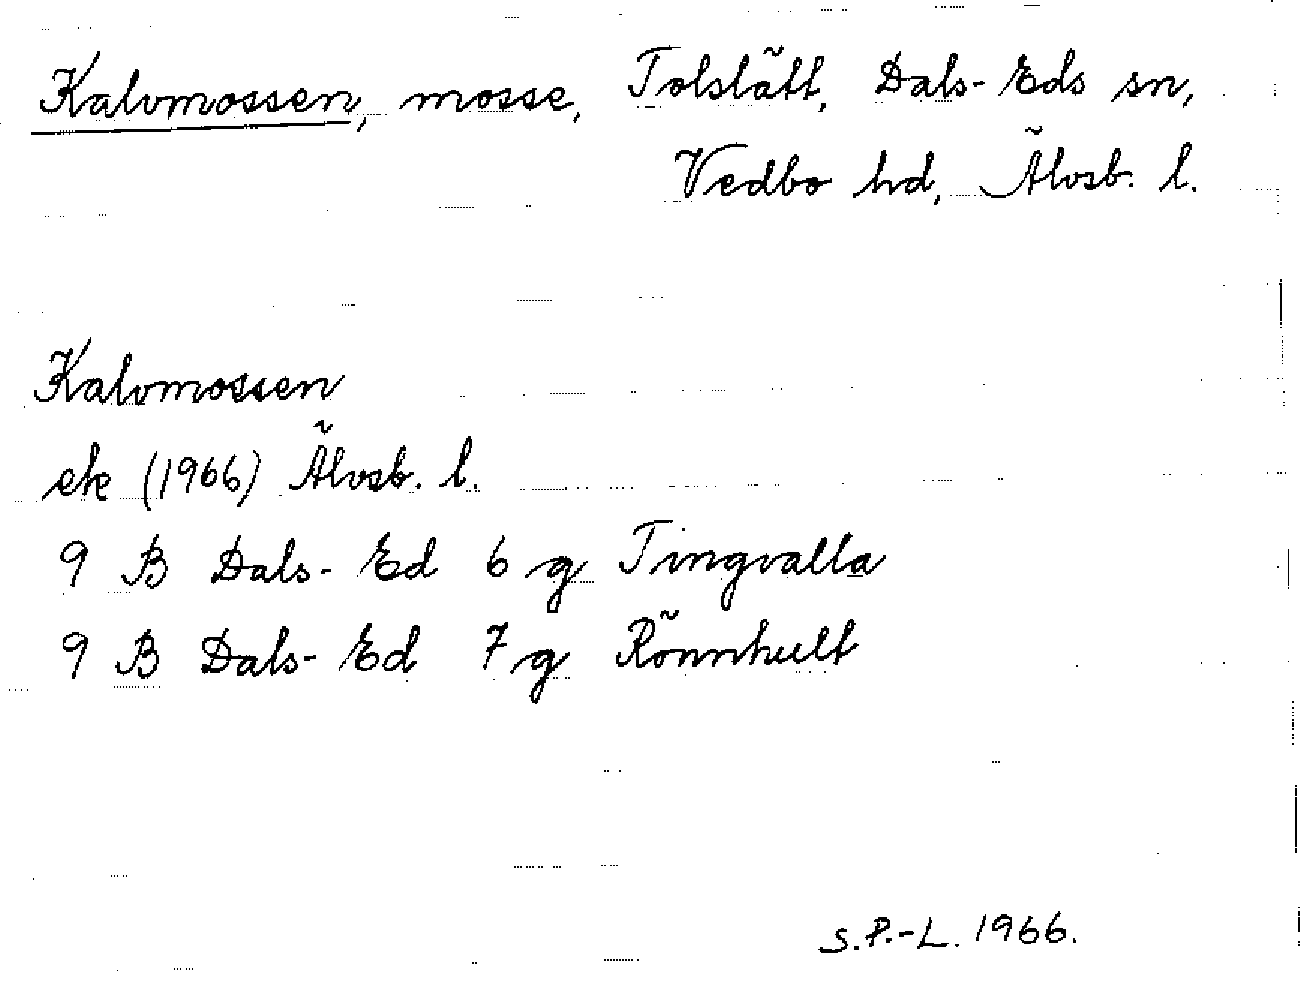 Kalvmossen, mosse, Tolslätt, Dals-Eds sn,
Vedbo hd, Älvsb. l.
Kalvmossen
ek (1966) Älvsb. l.
9 B Dals-Ed 6 g Tingvalla
9 B Dals-Ed 7 g Rönnhult
S.P.-L. 1966.